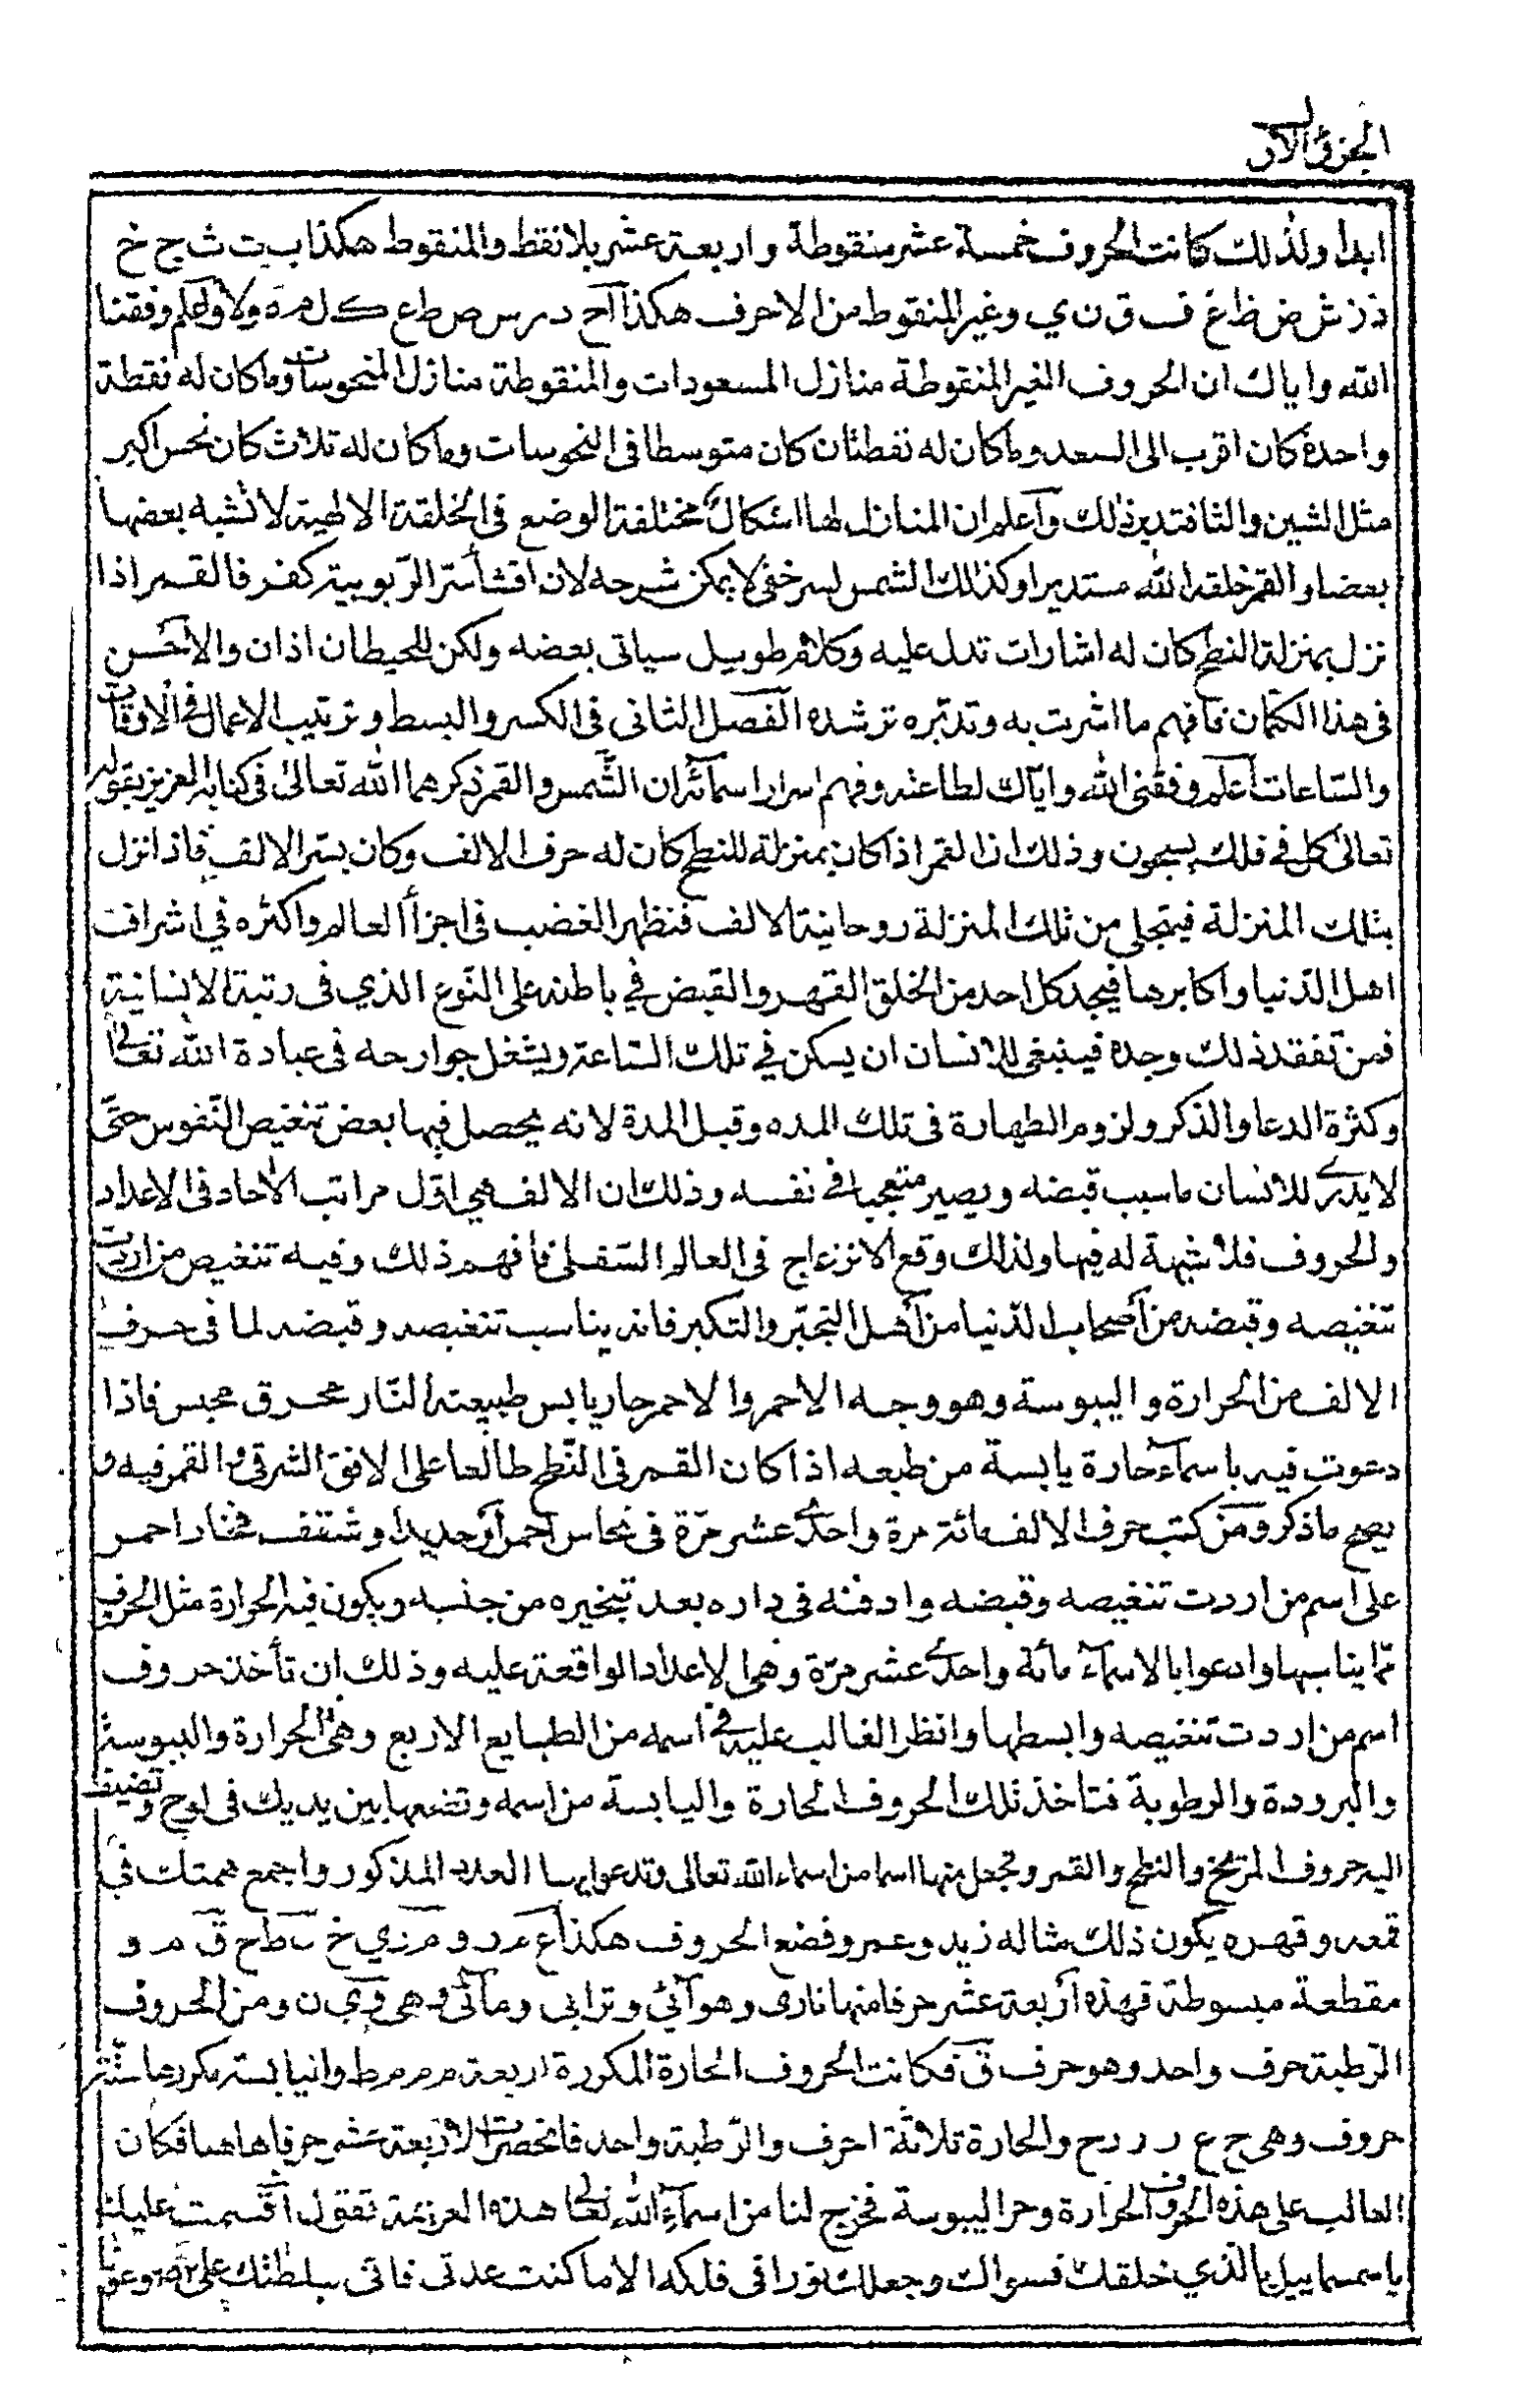 الجزؤ الاول
ابدا ولذلك كانت الحروف خمسة عشر منقوطة واربعة عشر بلا نقط والمنقوط هكذا ب ت ث ج خ
ذ ز ش ض ظ غ ف ق ن ي وغير المنقوط من الاحرف هكذا آ ح د ر س ص ط ع ك ل م ه و لا واعلم وفقنا
الله واياك ان الحروف الغير المنقوطة منازل المسعودات والمنقوطة منازل المنحوسات وما كان له نقطة
واحدة كان اقرب الى السعد وما كان له نقطتان كان متوسطا فى النحوسات وما كان له ثلاث كان نحس اكبر
مثل الشين والثا فتدبر ذلك وآعلم ان المنازل لها اشكال مختلفة الوضع فى الخلقة الالهية لا تشبه بعضها
بعضا والقمر خلقه الله مستديرا وكذلك الشمس لسر خفى لا يمكن شرحه لان افشأ سر الربوبية كفر فالقمر اذا
نزل بمنزلة النطح كان له اشارات تدل عليه وكلام طويل سياتى بعضه ولكن للحيطان اذان والاحسن
فى هذا الكتمان فافهم ما اشرت به وتدبره ترشد الفصل الثانى فى الكسر والبسط وترتيب الاعمال فى الاوقات
والساعات آعلم وفقنى الله واياك لطاعته وفهم اسرار اسمائه ان الشمس والقمر ذكرهما الله تعالى فى كتابه العزيز بقوله
تعالى كل فى فلك يسبحون وذلك ان القمر اذا كان بمنزلة للنطح كان له حرف الالف وكان بسر الالف فاذا نزل
بتلك المنزلة فيتجلى من تلك المنزلة روحانية الالف فتظهر الغضب فى اجزأ العالم واكثره في اشراف
اهل الدنيا واكابرها فيجد كل احد من الخلق القهر والقبض في باطنه على النوع الذي فى رتبة الانسانية
فمن تفقد ذلك وجده فينبغى للانسان ان يسكن في تلك الساعة ويشغل جوارحه فى عبادة الله تعالى
وكثرة الدعا والذكر ولزوم الطهارة فى تلك المده وقبل المدة لانه يحصل فيها بعض تنغيص النفوس حتى
لا يدرى للانسان ما سبب قبضه ويصير متعجبا فى نفسه وذلك ان الالف هي اول مراتب الاحاد فى الاعداد
والحروف فلا شبهة له فيها ولذلك وقع الانزعاج فى العالم السفلى فافهم ذلك وفيه تنغيص من اردت
تنغيصه وقبضه من اصحاب الدنيا من اهل التجبر والتكبر فانه يناسب تنغيصه وقبضه لما فى حرف
الالف من الحرارة واليبوسة وهو وجه الاحمر والاحمر حار يابس طبيعته النار محرق محبس فاذا
دعوت فيه باسمآء حارة يابسة من طبعه اذا كان القمر فى النطح طالعا على الافق الشرقى والقمر فيه و
يصح ما ذكر ومن كتب حرف الالف مائة مرة واحدى عشر مرة فى نحاس احمر او حديد او شقف فخار احمر
على اسم من اردت تنغيصه وقبضه وادفنه فى داره بعد تبخيره من جنسه ويكون فيه الحرارة مثل الحرف
مما يناسبها وادعوا بالاسمآء مائة واحدى عشر مرة وهى الاعداد الواقعة عليه وذلك ان تأخذ حروف
اسم من اردت تنغيصه وابسطها وانظر الغالب عليه فى اسمه من الطبايع الاربع وهى الحرارة واليبوسة
والبرودة والرطوبة فتاخذ تلك الحروف الحارة واليابسة من اسمه وتضعها بين يديك فى لوح وتضيف
اليه حروف المريخ والنطح والقمر وتجعل منها اسما من اسماء الله تعالى وتدعوا بها العدد المذكور واجمع همتك فى
قمعه وقهره يكون ذلك مثاله زيد وعمرو فضع الحروف هكذا ع م ر و م ر ي خ ن ط ح ق م ر
مقطعة مبسوطة فهذه اربعة عشر حرفا منها نارى وهوآئي وترابي ومآئى وهى و ي ن ومن الحروف
الرطبة حرف واحد وهو حرف ق فكانت الحروف الحارة المكررة اربعة م م م ط واليابسة بكررها ستة
حروف وهى خ ع ر ر ر ح والحارة ثلاثة احرف والرطبة واحد فانحصرت الاربعة عشر حرفا هاهنا فكان
الغالب على هذه الحروف الحرارة وحر اليبوسة فخرج لنا من اسمآء الله تعالى هذه العزيمة تقول اقسمت عليك
يا سمسماييل بالذي خلقك فسواك وجعلك نورا فى فلكه الا ما كنت عدتى فاتى بسلطنك على